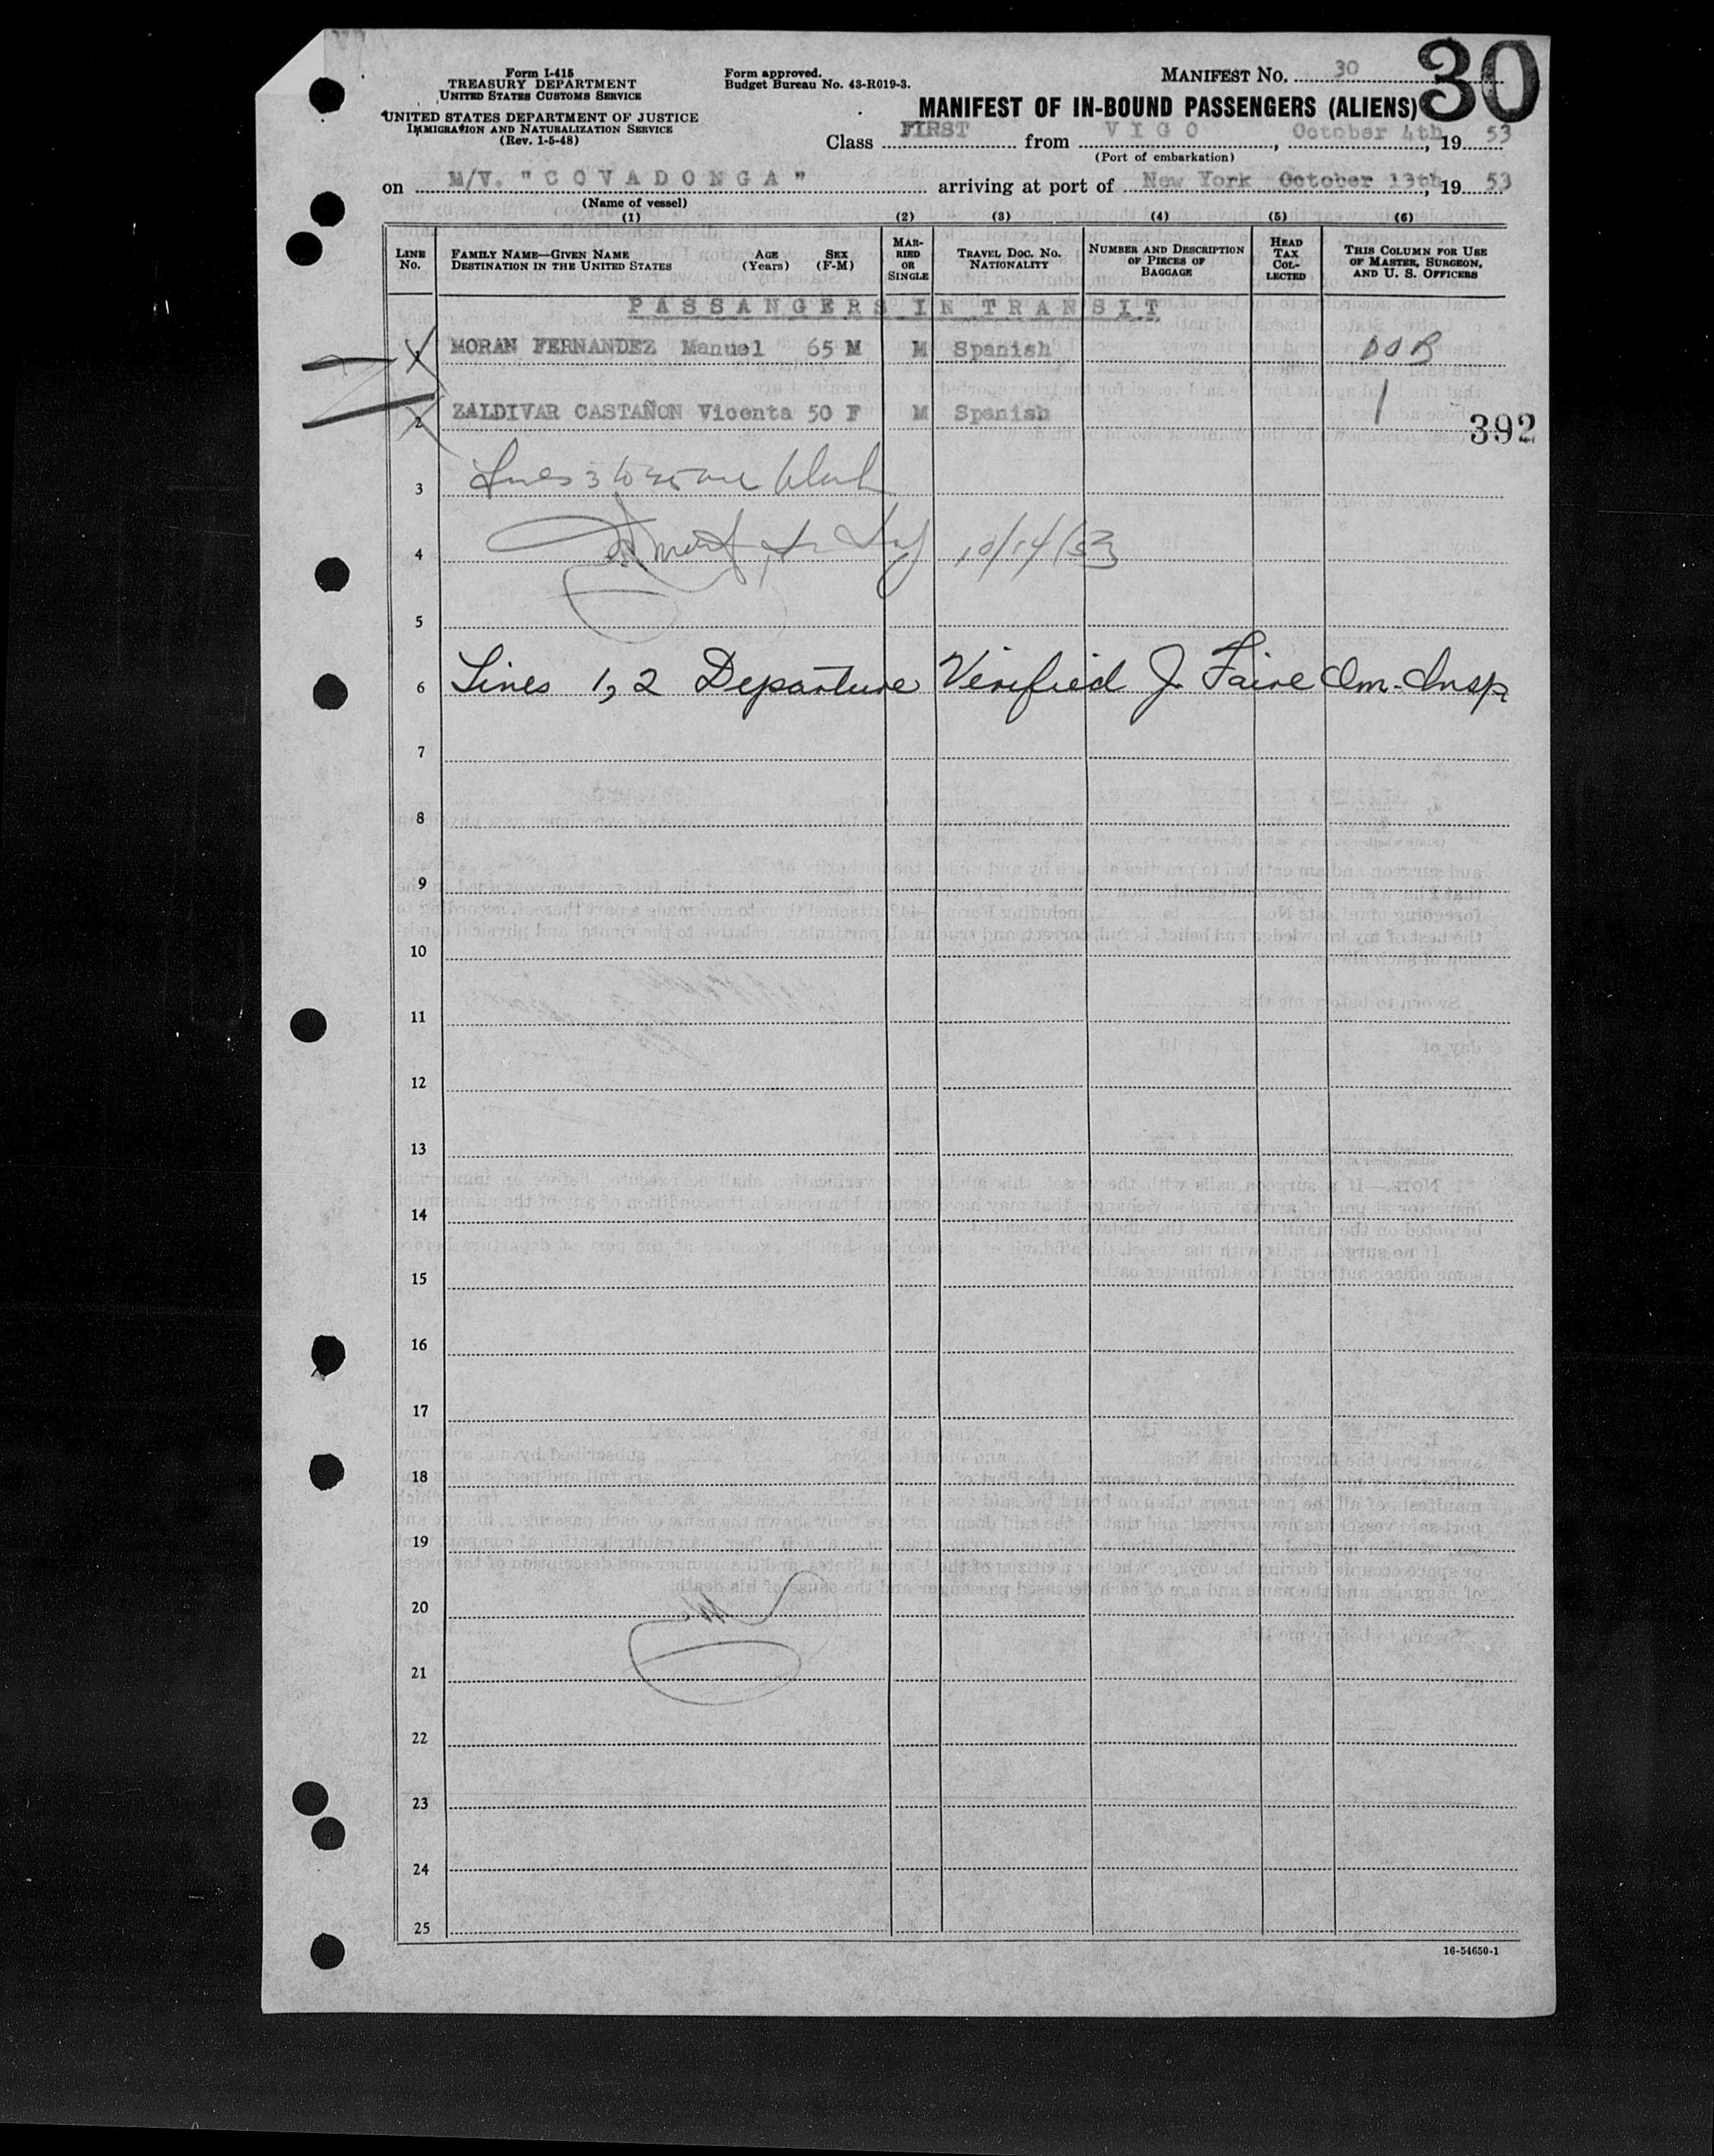 Form I-415
TREASURY DEPARTMENT
UNITED STATES CUSTOMS SERVICE
UNITED STATES DEPARTMENT OF JUSTICE
IMMIGRATION AND NATURALIZATION SERVICE
(Rev. 1-5-48)
Form approved.
Budget Bureau No. 43-R019-3.
MANIFEST NO. 30
30
MANIFEST OF IN-BOUND PASSENGERS (ALIENS)
Class FIRST from VIGO, October 4th, 19 53
(Port of embarkation)
on M/V. "COVADONGA" arriving at port of New York October 13th, 19 53
(Name of vessel)
(1) (2) (3) (4) (5) (6)
LINE NO. FAMILY NAME—GIVEN NAME DESTINATION IN THE UNITED STATES AGE (Years) SEX (F-M) MARRIED OR SINGLE TRAVEL DOC. NO. NATIONALITY NUMBER AND DESCRIPTION OF PIECES OF BAGGAGE HEAD TAX COLLECTED THIS COLUMN FOR USE OF MASTER, SURGEON, AND U. S. OFFICERS
PASSANGERS IN TRANSIT
1 MORAN FERNANDEZ Manuel 65 M M Spanish
2 ZALDIVAR CASTAÑON Vicenta 50 F M Spanish
392
3 Lines 3 to 25 are blank
4 10/14/53
5
6 Lines 1, 2 Departure Verified J. Faire Im. Insp
7
8
9
10
11
12
13
14
15
16
17
18
19
20
21
22
23
24
25
16-54650-1